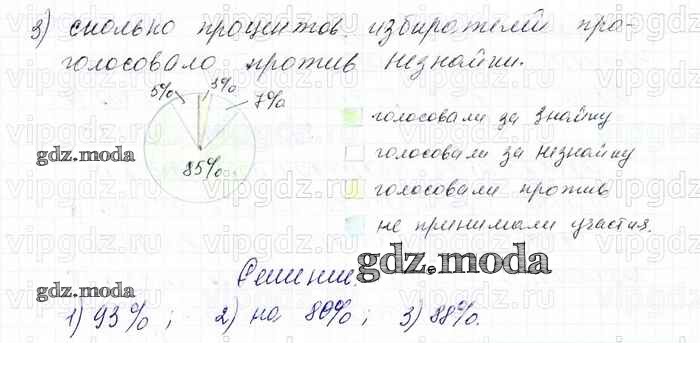 3) сколько процентов избирателей про-
голосовало против Незнайки.
5% 3% 7%
85%
голосовали за Знайку
голосовали за Незнайку
голосовали против
не принимали участия.
gdz.moda
gdz.moda
Решение.
gdz.moda
1) 93%; 2) на 80%; 3) 88%.
vipgdz.ru